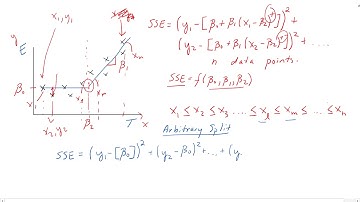 x₁,y₁
y
E
xₙ
β₀
β₁
x_l
x_m
x₂,y₂
β₂
T
x
SSE = (y₁ - [β₀ + β₁(x₁ - β₂)⁺])² +
(y₂ - [β₀ + β₁(x₂ - β₂)⁺])² + ....
n data points.
SSE = f(β₀, β₁, β₂)
x₁ ≤ x₂ ≤ x₃ .... ≤ x_l ≤ x_m ≤ ... ≤ xₙ
Arbitrary Split
SSE = (y₁ - [β₀])² + (y₂ - β₀)² + ... + (y